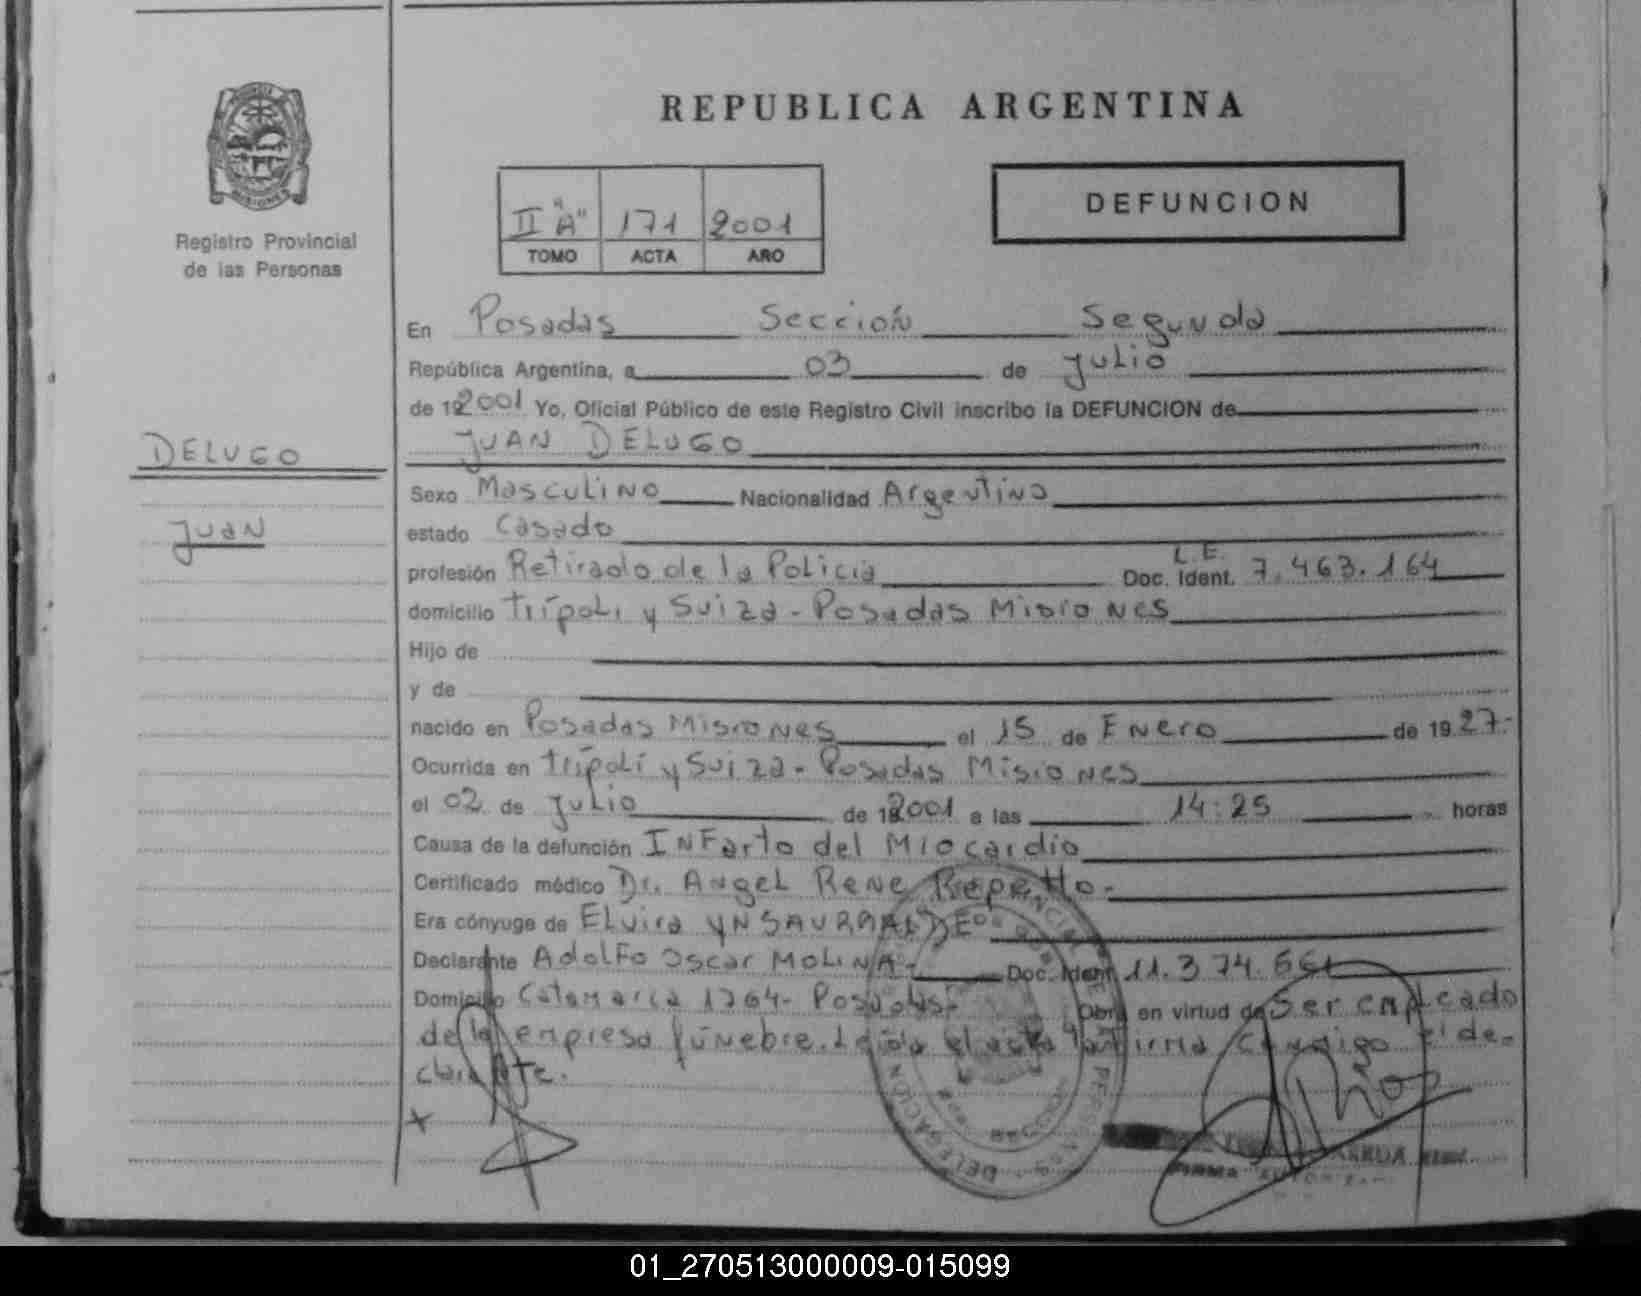 REPUBLICA ARGENTINA
MISIONES
Registro Provincial
de las Personas
II "A" 171 2001
TOMO ACTA AÑO
DEFUNCION
En Posadas Sección Segunda
República Argentina, a 03 de Julio
de 19 2001 Yo, Oficial Público de este Registro Civil inscribo la DEFUNCION de
JUAN DELUGO
DELUGO
Juan
Sexo Masculino Nacionalidad Argentina
estado Casado
profesión Retirado de la Policia Doc. Ident. L.E. 7.463.164
domicilio Trípoli y Suiza - Posadas Misiones
Hijo de
y de
nacido en Posadas Misiones el 15 de Enero de 19 27.
Ocurrida en Trípoli y Suiza - Posadas Misiones
el 02 de Julio de 19 2001 a las 14:25 horas
Causa de la defunción INFarto del Miocardio
Certificado médico Dr. Angel Rene Repetto.-
Era cónyuge de Elvira YNSAURRALDE
Declarante Adolfo Oscar MOLINA.- Doc. Ident. 11.374.661
Domicilio Catamarca 1764- Posadas- Obra en virtud de Ser empleado
de la empresa fúnebre. Leída el acta la firma Conmigo el de-
clarante.
X
DELEGACION
FIRMA
01_270513000009-015099